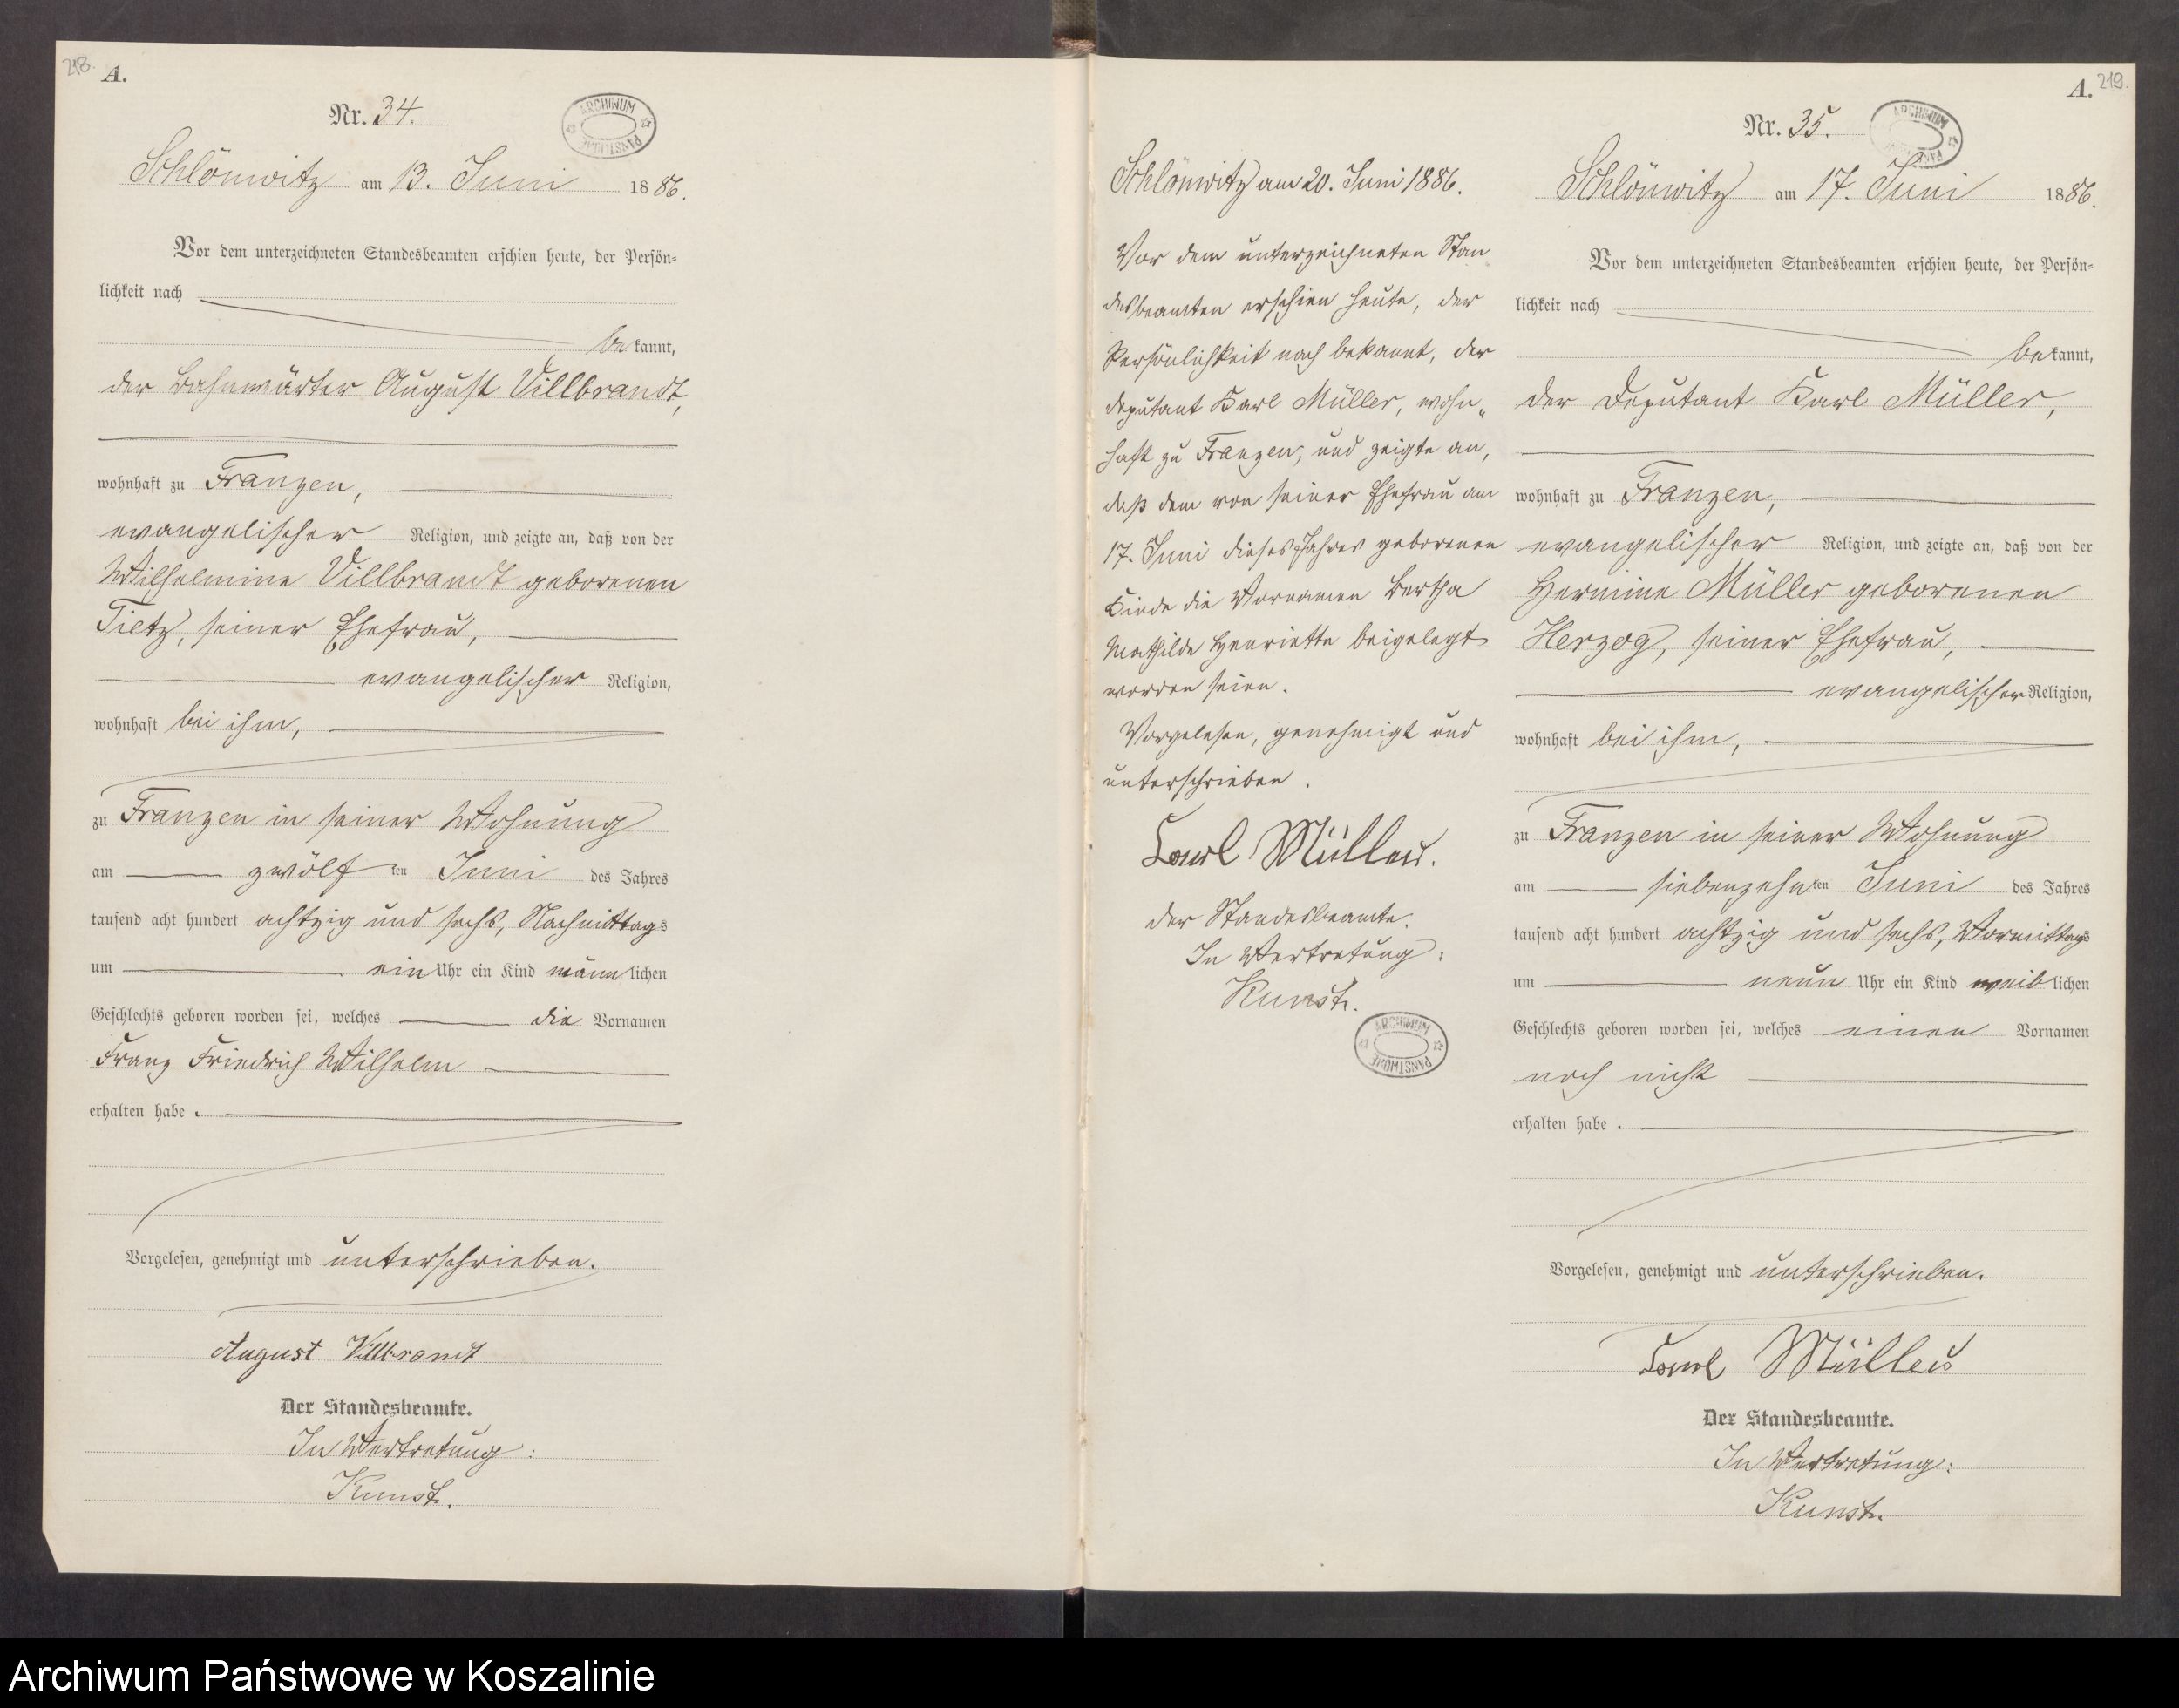 218.
A.
Nr. 34.
ARCHIWUM PAŃSTWOWE
Schlönwitz am 13. Juni 1886.
Vor dem unterzeichneten Standesbeamten erschien heute, der Persön=
lichkeit nach
bekannt,
der Bahnwärter August Villbrandt,
wohnhaft zu Franzen,
evangelischer Religion, und zeigte an, daß von der
Wilhelmine Villbrandt geborenen
Tietz, seiner Ehefrau,
evangelischer Religion,
wohnhaft bei ihm,
zu Franzen in seiner Wohnung
am zwölften Juni des Jahres
tausend acht hundert achtzig und sechs, Nachmittags
um ein Uhr ein Kind männlichen
Geschlechts geboren worden sei, welches die Vornamen
Franz Friedrich Wilhelm
erhalten habe.
Vorgelesen, genehmigt und unterschrieben.
August Villbrandt
Der Standesbeamte.
In Vertretung:
Kunst.
Schlönwitz am 20. Juni 1886.
Vor dem unterzeichneten Stan
desbeamten erschien heute, der
Persönlichkeit nach bekannt, der
Deputant Karl Müller, wohn„
haft zu Franzen, und zeigte an,
daß dem von seiner Ehefrau am
17. Juni dieses Jahres geborenen
Kinde die Vornamen Bertha
Mathilde Henriette beigelegt
worden seien.
Vorgelesen, genehmigt und
unterschrieben.
Carl Müller.
Der Standesbeamte.
In Vertretung:
Kunst.
ARCHIWUM PAŃSTWOWE
A. 219.
Nr. 35.
ARCHIWUM PAŃSTWOWE
Schlönwitz am 17. Juni 1886.
Vor dem unterzeichneten Standesbeamten erschien heute, der Persön=
lichkeit nach
bekannt,
der Deputant Karl Müller,
wohnhaft zu Franzen,
evangelischer Religion, und zeigte an, daß von der
Hermine Müller geborenen
Herzog, seiner Ehefrau,
evangelischer Religion,
wohnhaft bei ihm,
zu Franzen in seiner Wohnung
am siebenzehnten Juni des Jahres
tausend acht hundert achtzig und sechs, Vormittags
um neun Uhr ein Kind weiblichen
Geschlechts geboren worden sei, welches einen Vornamen
noch nicht
erhalten habe.
Vorgelesen, genehmigt und unterschrieben.
Carl Müller
Der Standesbeamte.
In Vertretung:
Kunst.
Archiwum Państwowe w Koszalinie